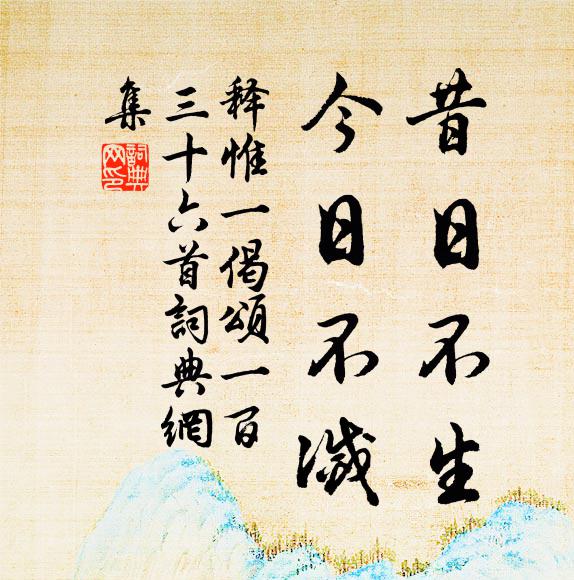 昔日不生
今日不滅
释惟一偈頌一百
三十六首詞典網
集
詞典
网印